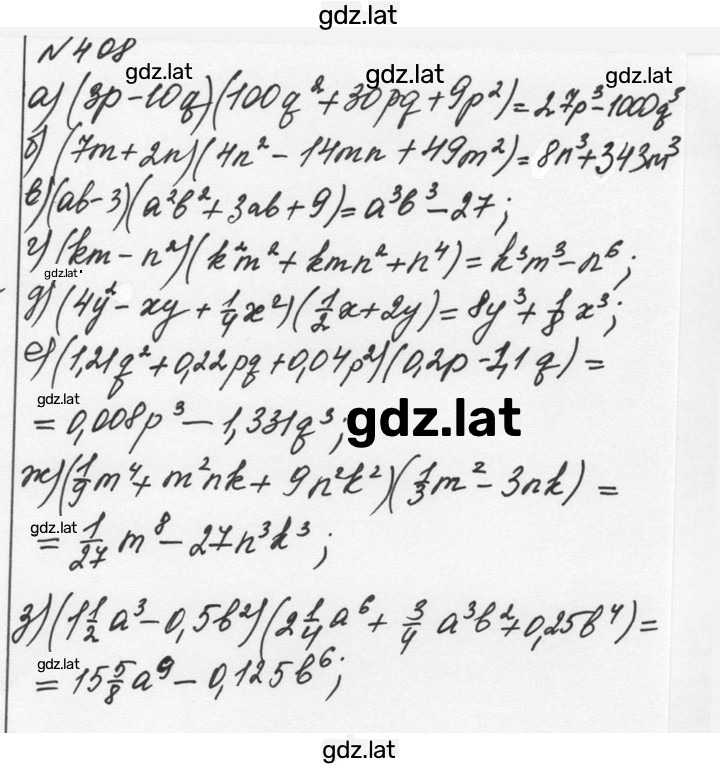 gdz.lat
N 408
gdz.lat gdz.lat gdz.lat
а) (3p - 10q)(100q² + 30pq + 9p²) = 27p³ - 1000q³
б) (7m + 2n)(4n² - 14mn + 49m²) = 8n³ + 343m³
в) (ab - 3)(a²b² + 3ab + 9) = a³b³ - 27;
г) (km - n²)(k²m² + kmn² + n⁴) = k³m³ - n⁶;
gdz.lat
д) (4y² - xy + 1/4 x²)(1/2 x + 2y) = 8y³ + 1/8 x³;
е) (1,21q² + 0,22pq + 0,04p²)(0,2p - 1,1q) =
gdz.lat
= 0,008p³ - 1,331q³;
gdz.lat
ж) (1/9 m⁴ + m²nk + 9n²k²)(1/3 m² - 3nk) =
gdz.lat
= 1/27 m⁸ - 27n³k³;
з) (1 1/2 a³ - 0,5b²)(2 1/4 a⁶ + 3/4 a³b² + 0,25b⁴) =
gdz.lat
= 15 5/8 a⁹ - 0,125b⁶;
gdz.lat